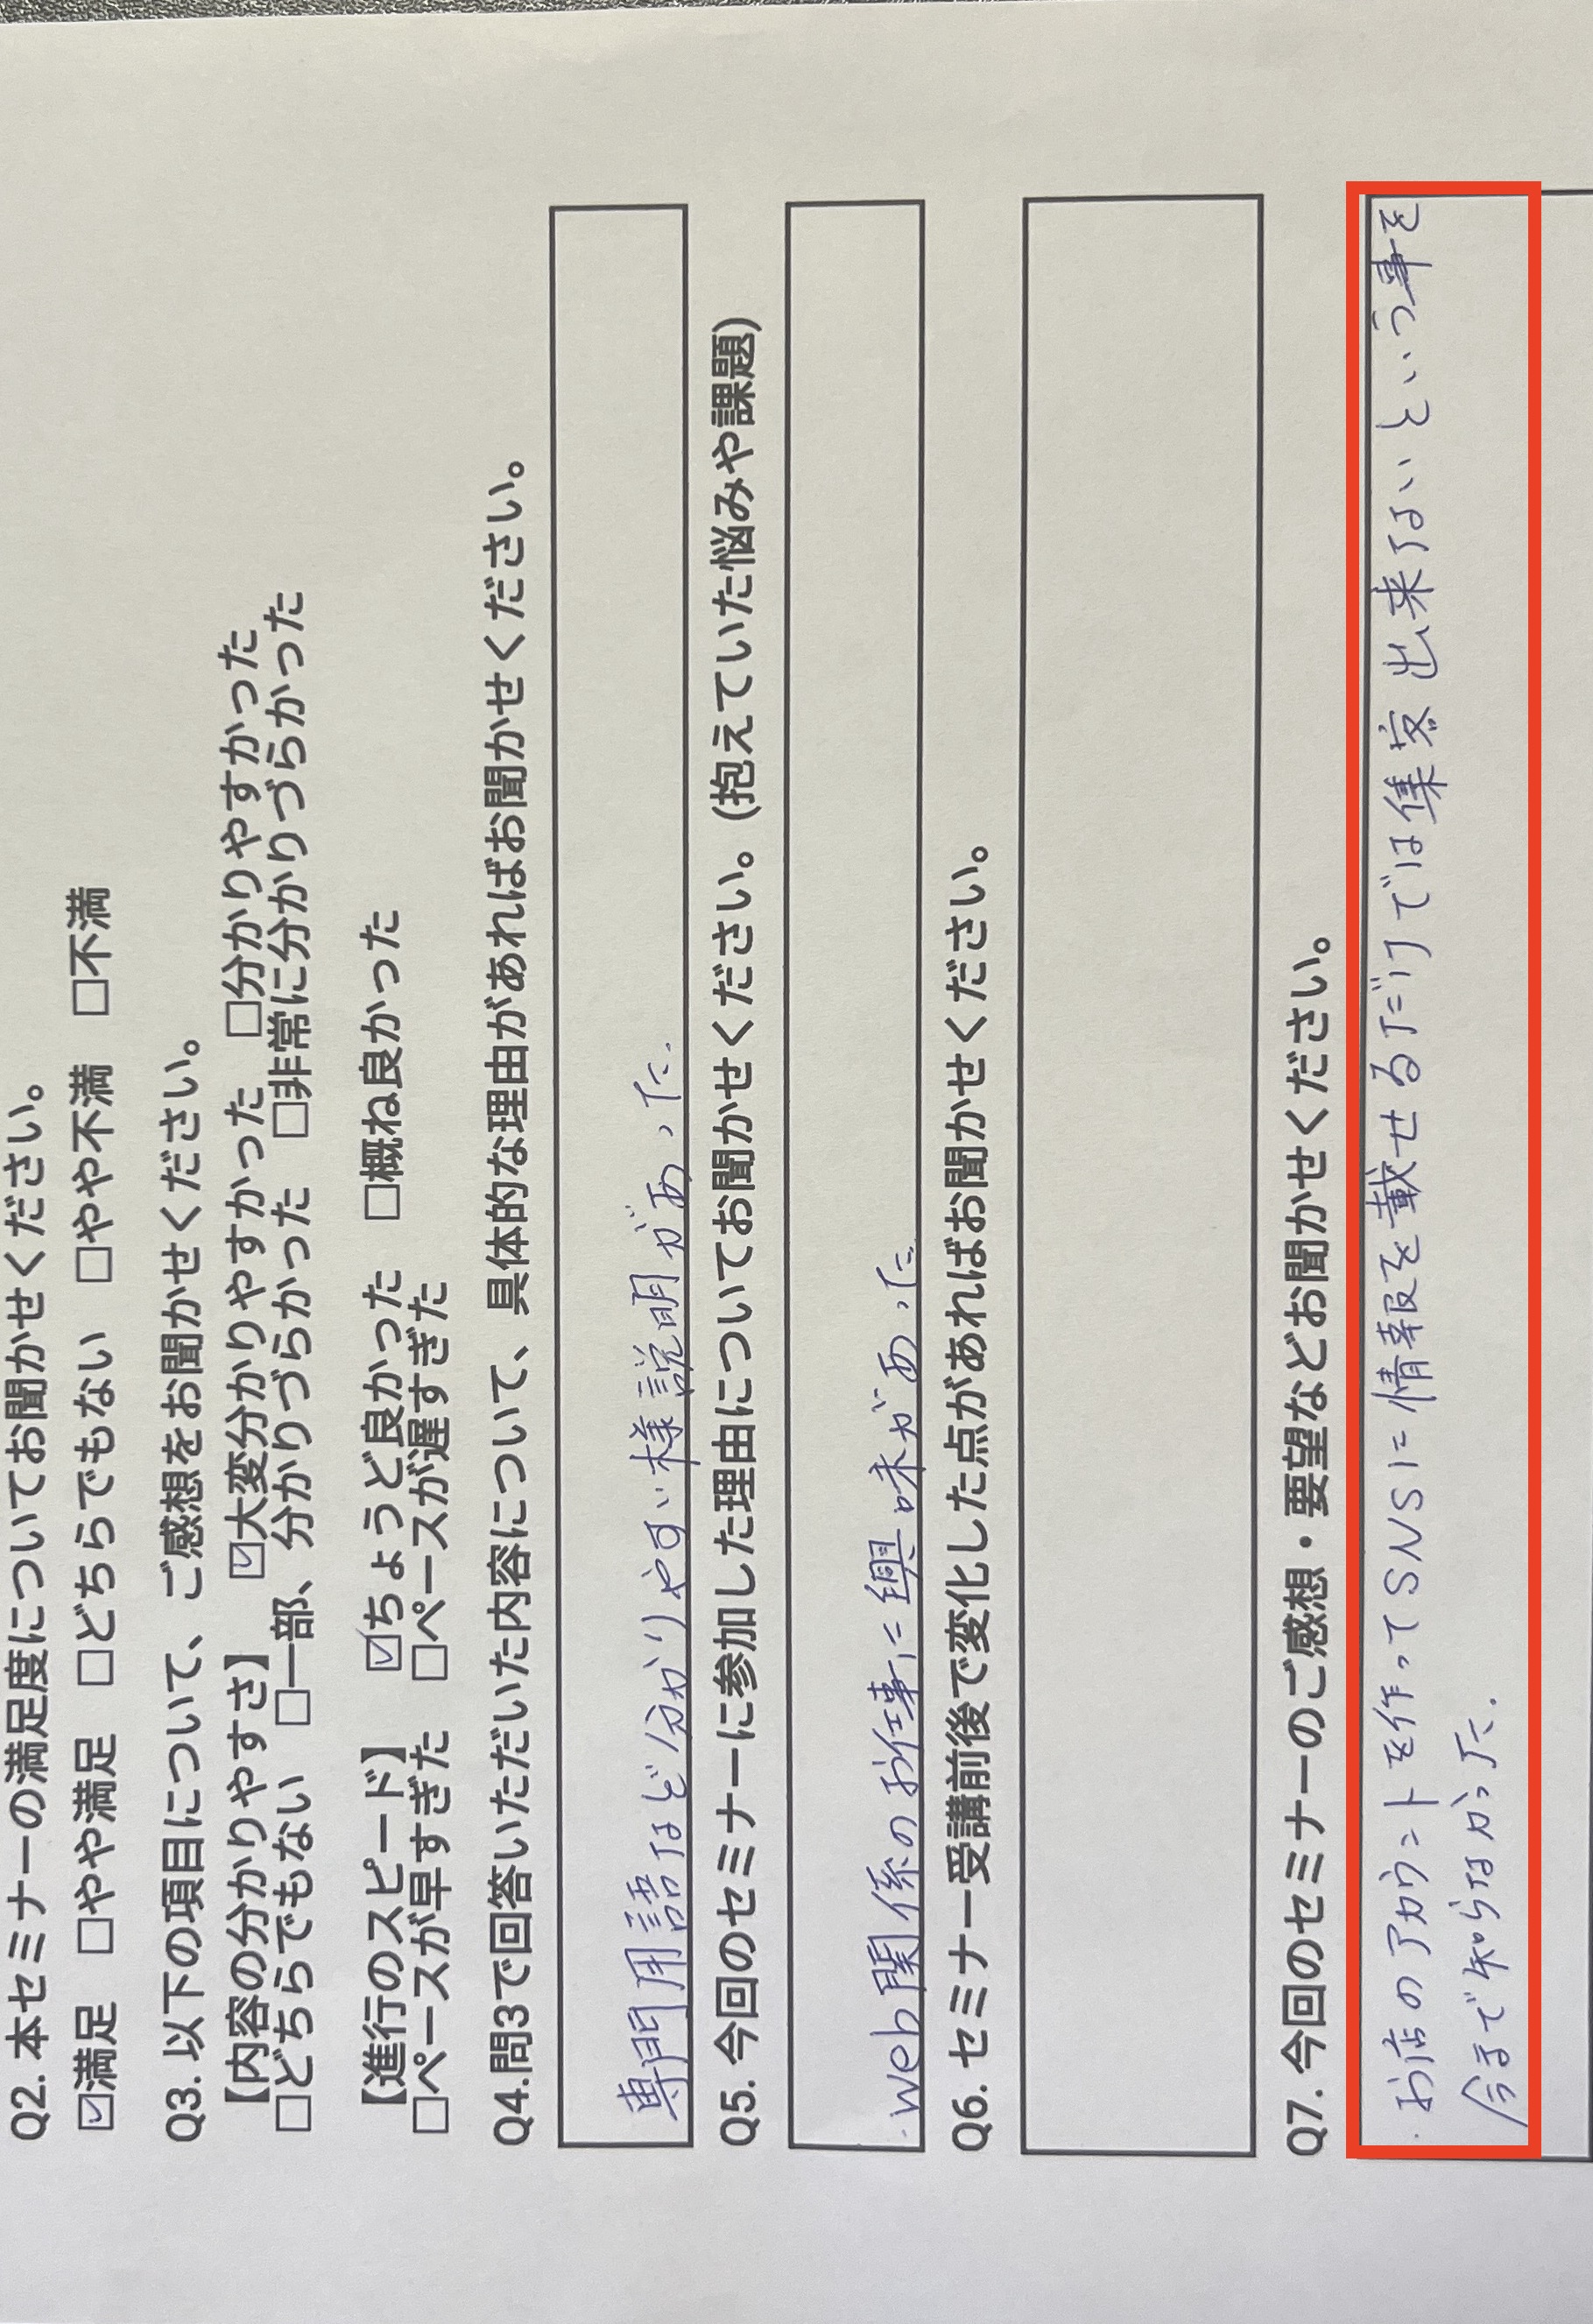 Q2. 本セミナーの満足度についてお聞かせください。
☑満足 □やや満足 □どちらでもない □やや不満 □不満
Q3. 以下の項目について、ご感想をお聞かせください。
【内容の分かりやすさ】 ☑大変分かりやすかった □分かりやすかった
□どちらでもない □一部、分かりづらかった □非常に分かりづらかった
【進行のスピード】 ☑ちょうど良かった □概ね良かった
□ペースが早すぎた □ペースが遅すぎた
Q4.問3で回答いただいた内容について、具体的な理由があればお聞かせください。
専門用語など分かりやすい様説明があった.
Q5. 今回のセミナーに参加した理由についてお聞かせください。(抱えていた悩みや課題)
・Web関係のお仕事に興味があった
Q6. セミナー受講前後で変化した点があればお聞かせください。
Q7. 今回のセミナーのご感想・要望などお聞かせください。
・お店のアカウントを作ってSNSに情報を載せるだけでは集客出来ないという事を
今まで知らなかった.